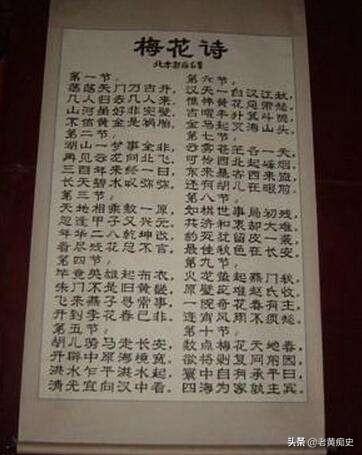 梅花诗
北宋邵雍
第一节：
荡荡天门万古开，
几人归去几人来。
山河虽好非完璧，
不信黄金是祸胎。
第二节：
湖山一梦事全非，
再见云龙向北飞。
三百年来终一日，
长天碧水叹弥弥。
第三节：
天地相乘数一原，
忽逢甲子又兴元。
年华二八乾坤改，
看尽残花总不言。
第四节：
毕竟英雄起布衣，
朱门不是旧黄畿。
飞来燕子寻常事，
开到李花春已非。
第五节：
胡儿骑马走长安，
开辟中原海境宽。
洪水乍平洪水起，
清光宜向汉中看。
第六节：
汉天一白汉江秋，
憔悴黄花总带愁。
吉曜半升箕斗隐，
金乌起灭海山头。
第七节：
云雾苍茫各一天，
可怜西北起烽烟。
东来暴客西来盗，
还有胡儿在眼前。
第八节：
如棋世事局初残，
共济和衷却大难。
豹死犹留皮一袭，
最佳秋色在长安。
第九节：
火龙蛰起燕门秋，
原璧应难赵氏收。
一院奇花春有主，
连宵风雨不须愁。
第十节：
数点梅花天地春，
欲将剥复问前因。
寰中自有承平日，
四海为家孰主宾。
头条 @老黄痴史